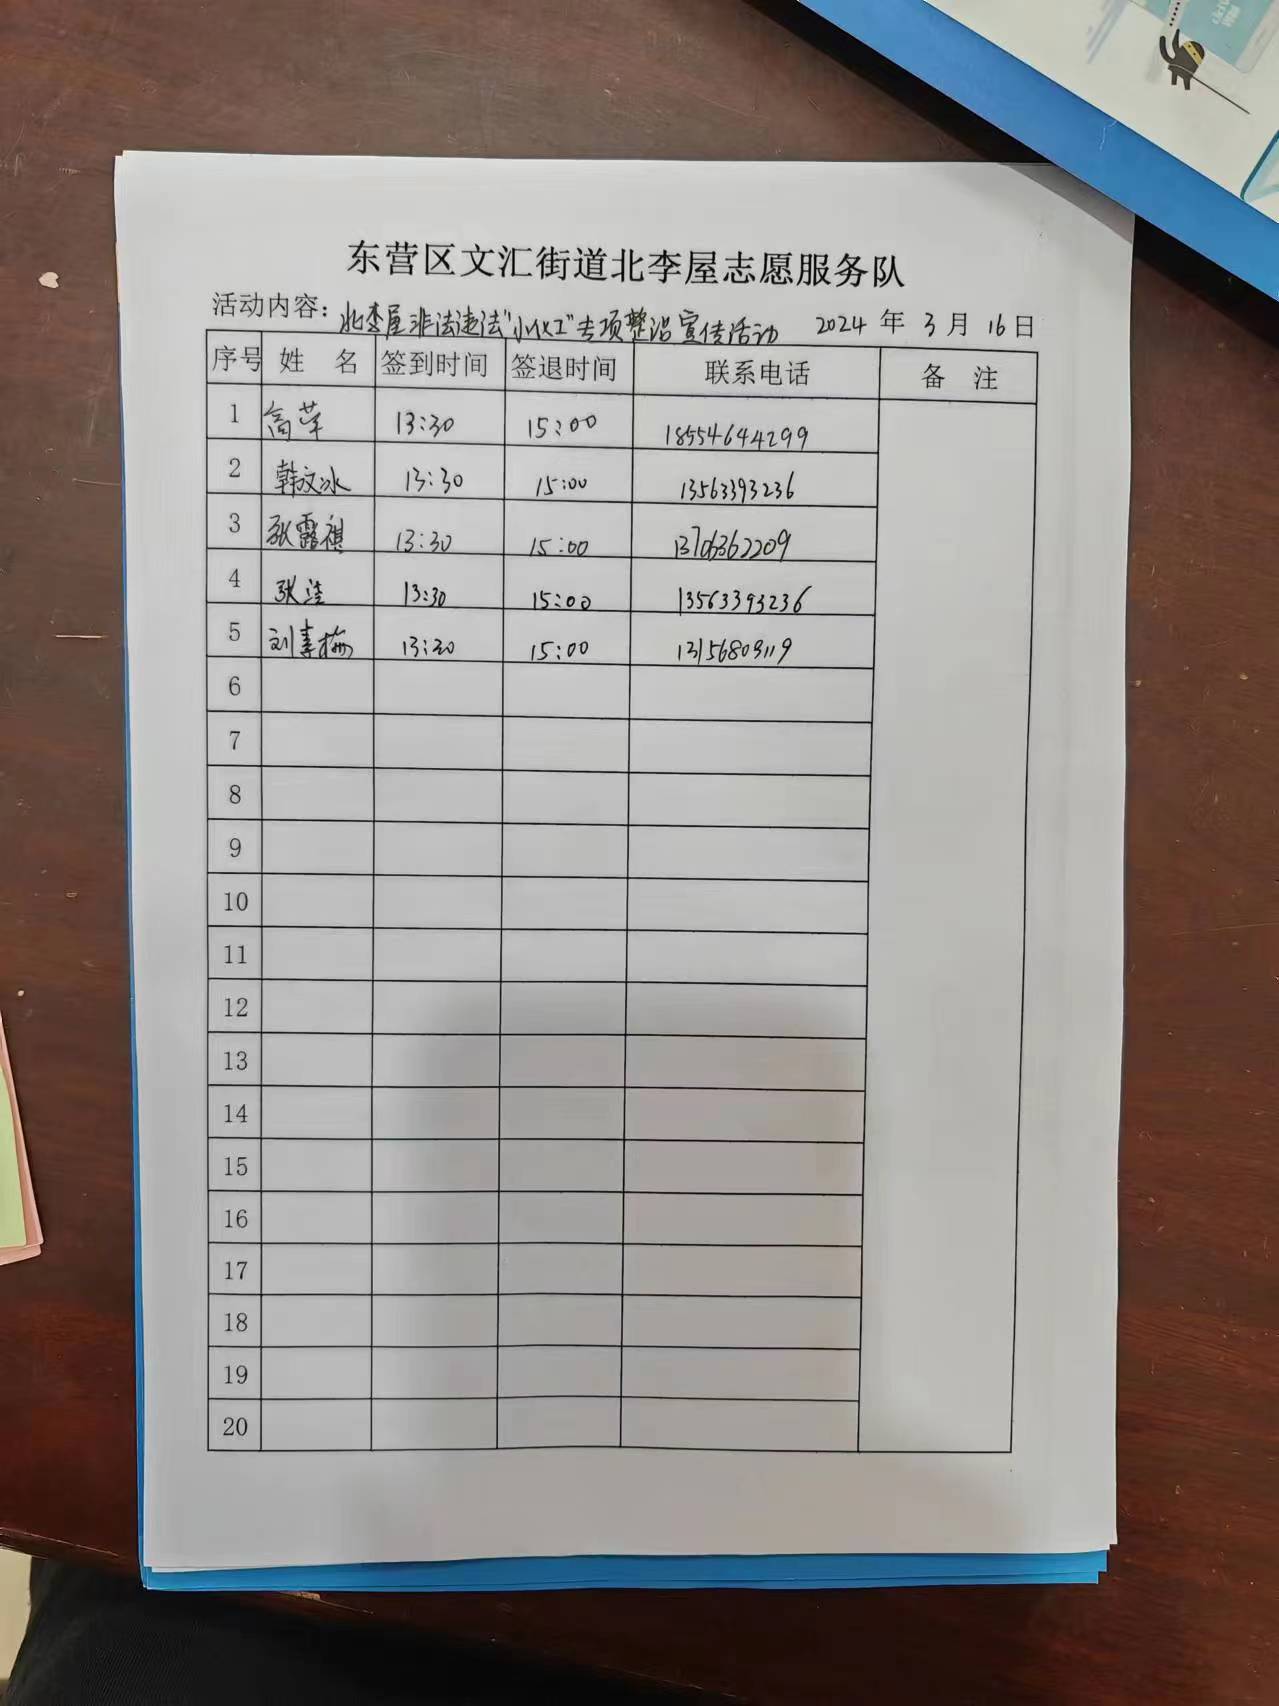 东营区文汇街道北李屋志愿服务队
活动内容：北李屋非法违法"小化工"专项整治宣传活动 2024 年 3 月 16 日
序号 姓 名 签到时间 签退时间 联系电话 备 注
1 高苹 13:30 15:00 18554644299
2 韩文冰 13:30 15:00 13563393236
3 张露祺 13:30 15:00 13706362209
4 张洼 13:30 15:00 13563393236
5 刘素梅 13:30 15:00 13156803119
6
7
8
9
10
11
12
13
14
15
16
17
18
19
20